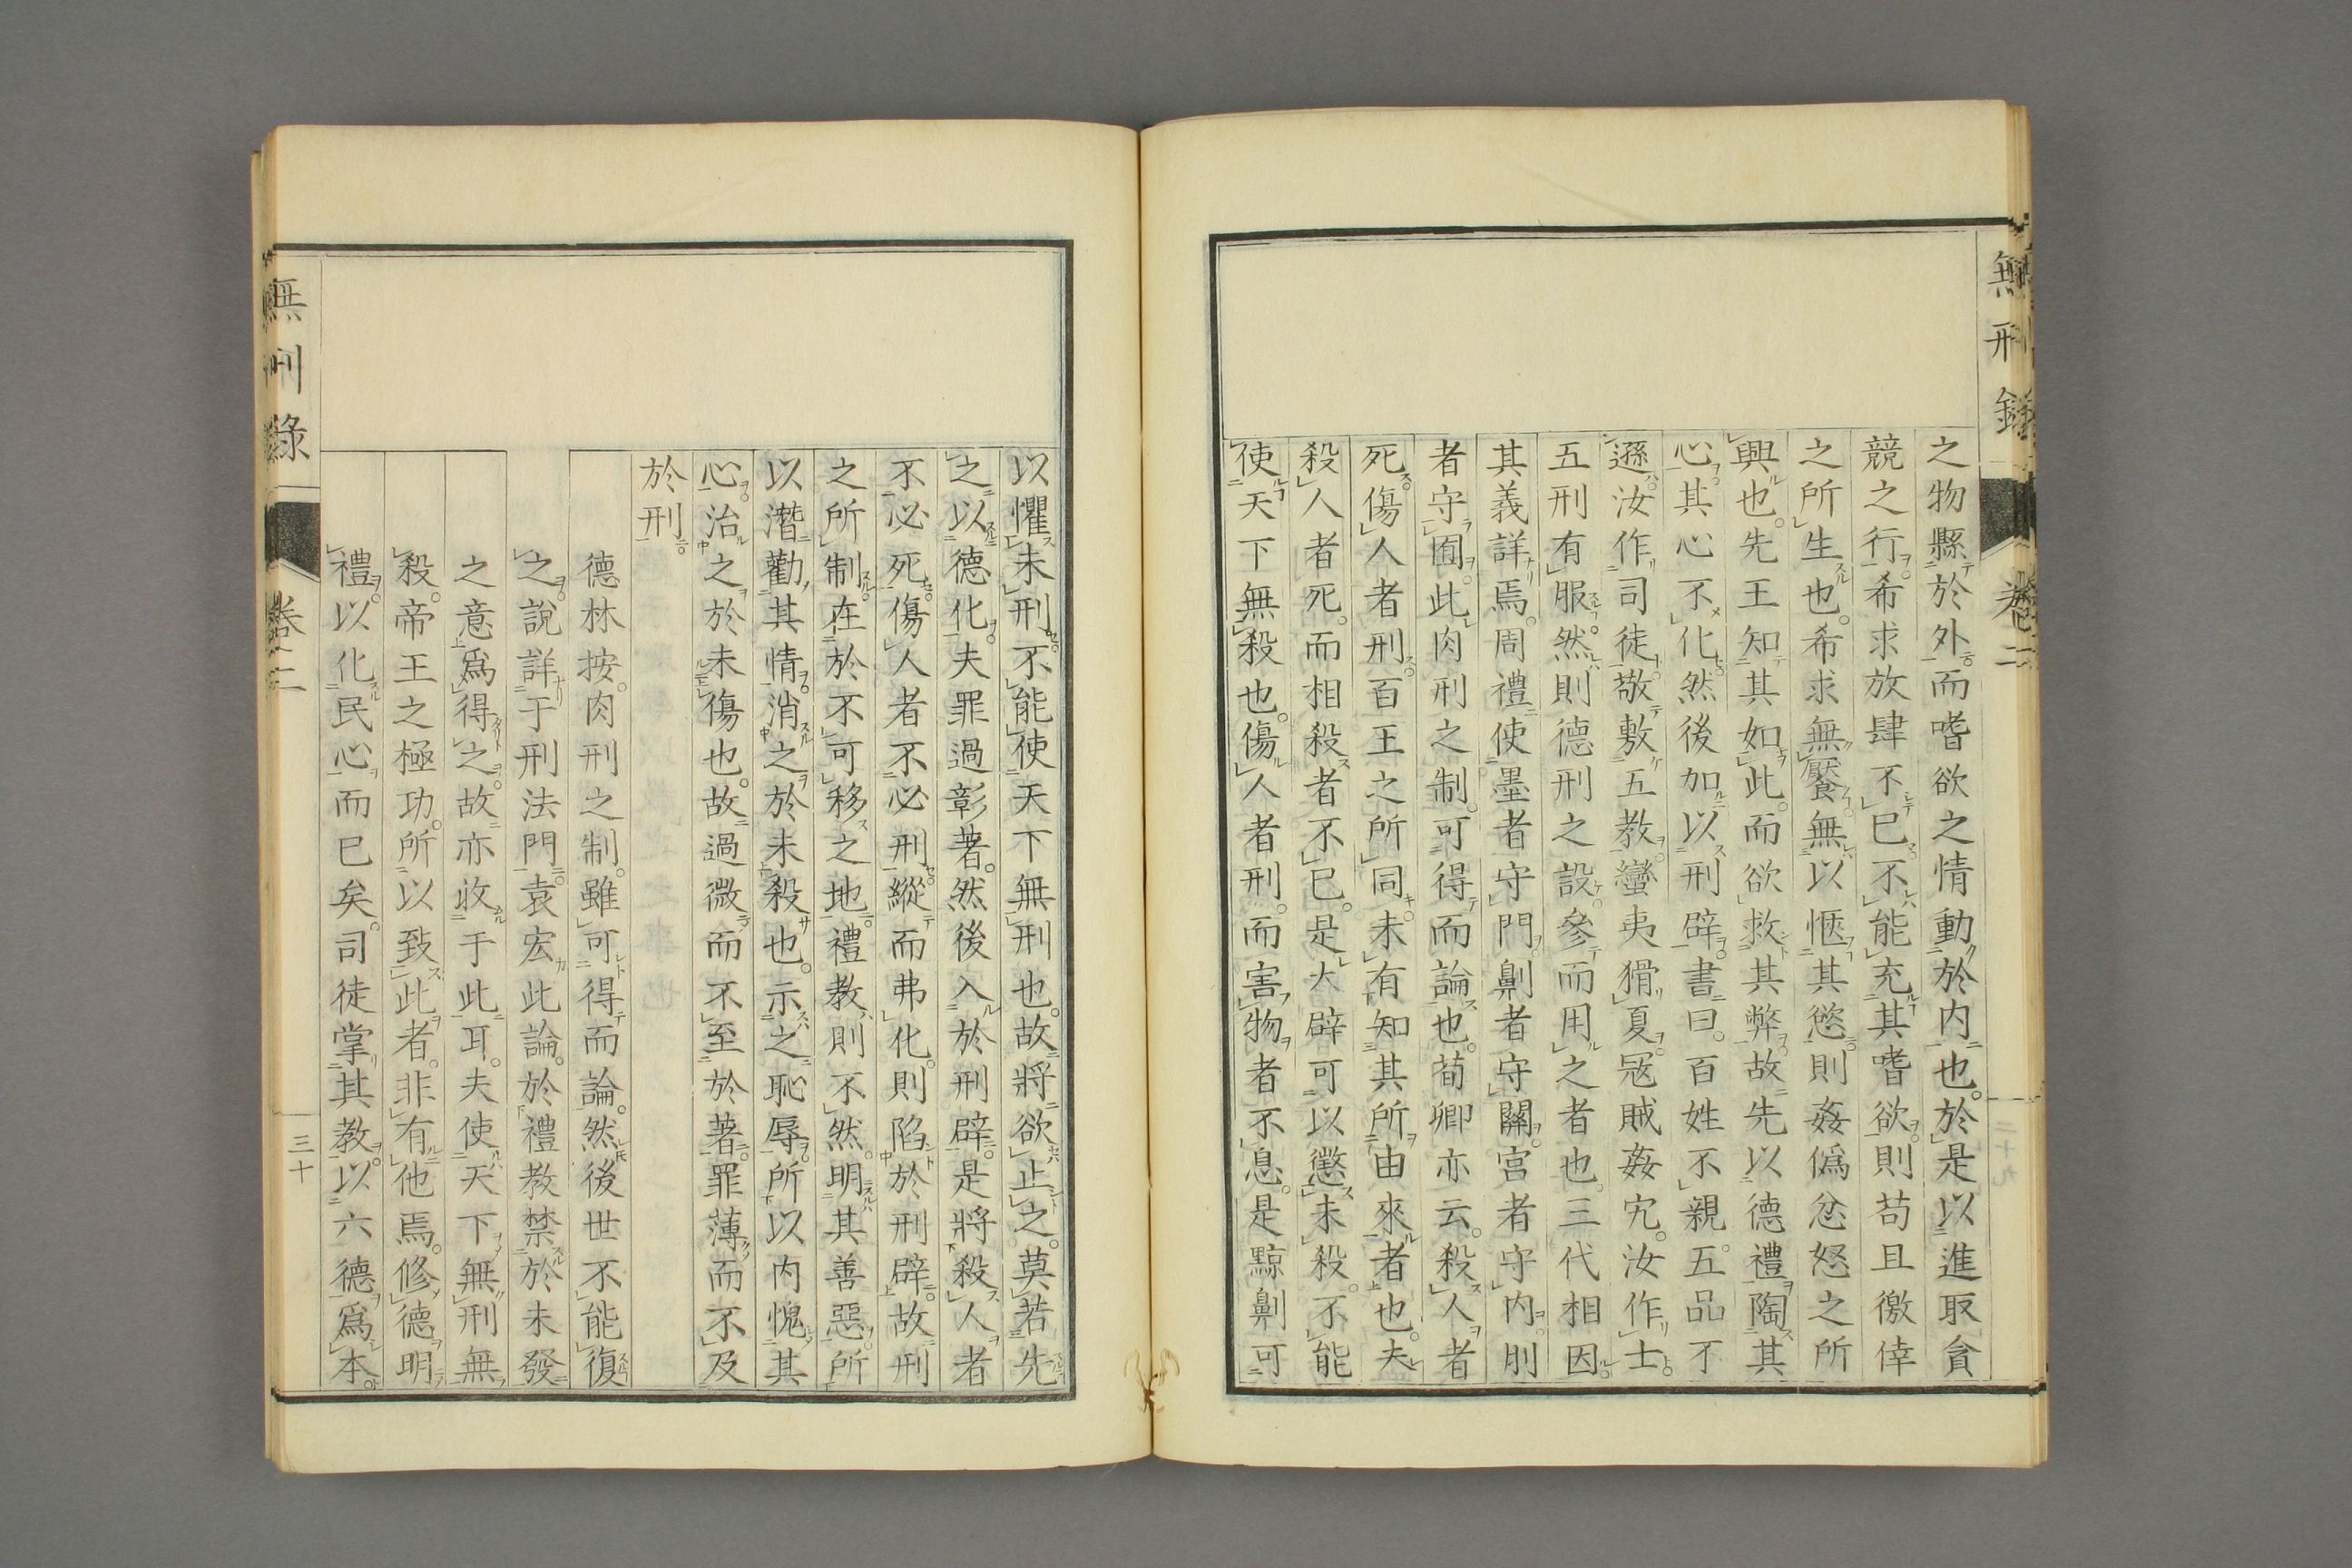 無刑錄
卷二
二十九
之物縣於外而嗜欲之情動於内也於是以進取貪
競之行希求放肆不已不能充其嗜欲則苟且徼倖
之所生也希求無饜無以愜其慾則姦偽忿怒之所
興也先王知其如此而欲救其弊故先以德禮陶其
心其心不化然後加以刑辟書曰百姓不親五品不
遜汝作司徒敬敷五教蠻夷猾夏寇賊姦宄汝作士
五刑有服然則德刑之設參而用之者也三代相因
其義詳焉周禮使墨者守門劓者守關宮者守内刖
者守囿此肉刑之制可得而論也荀卿亦云殺人者
死傷人者刑百王之所同未有知其所由來者也夫
殺人者死而相殺者不已是大辟可以懲未殺不能
使天下無殺也傷人者刑而害物者不息是黥劓可
以懼未刑不能使天下無刑也故將欲止之莫若先
之以德化夫罪過彰著然後入於刑辟是將殺人者
不必死傷人者不必刑縱而弗化則陷於刑辟故刑
之所制在於不可移之地禮教則不然明其善惡所
以潛勸其情消之於未殺也示之恥辱所以内愧其
心治之於未傷也故過微而不至於著罪薄而不及
於刑
德林按肉刑之制雖可得而論然後世不能復
之說詳于刑法門袁宏此論於禮教禁於未發
之意爲得之故亦收于此耳夫使天下無刑無
殺帝王之極功所以致此者非有他焉修德明
禮以化民心而已矣司徒掌其教以六德爲本
無刑錄
卷二
三十